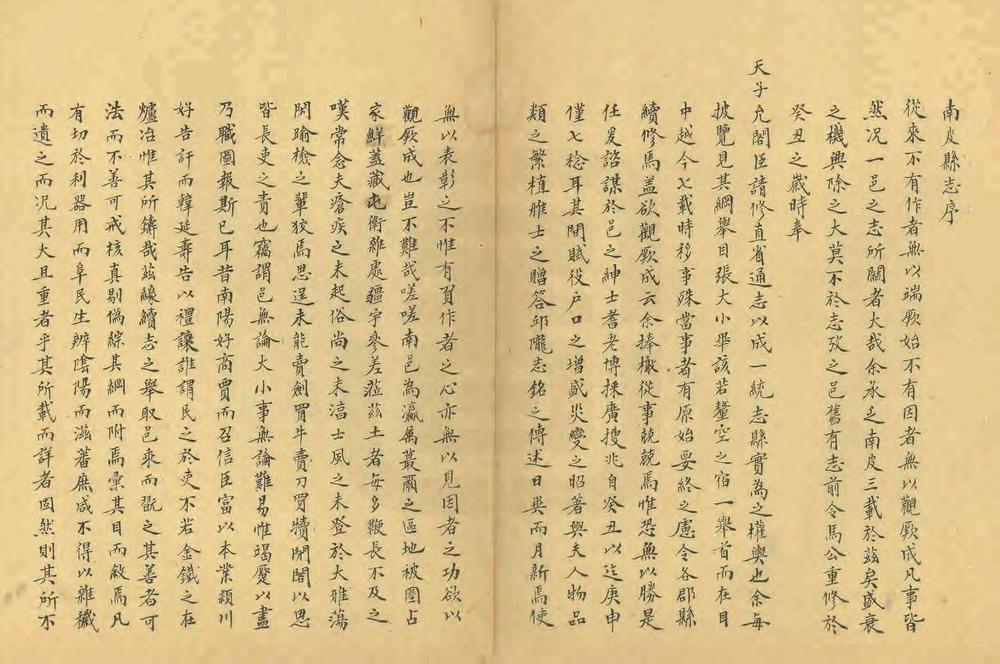 南皮縣志序
從來不有作者無以端厥始不有因者無以觀厥成凡事皆
然况一邑之志所關者大哉余承乏南皮三載於茲矣盛衰
之機興除之大莫不於志攷之邑舊有志前令馬公重修於
癸丑之歲時奉
天子允閣臣請修直省通志以成一統志縣實為之權輿也余每
披覽見其綱舉目張大小畢該若鏨空之宿一舉首而在目
中越今七載時移事殊當事者有原始要終之慮令各郡縣
續修焉盖欲觀厥成云余捧檄從事兢兢焉惟恐無以勝是
任爰諮謀於邑之紳士耆老博採廣搜兆自癸丑以迄庚申
僅七稔耳其間賦役户口之增盛災變之昭著與夫人物品
類之繁植騅士之贈答邱隴志銘之傳述日異而月新焉使
無以表彰之不惟有負作者之心亦無以見因者之功欲以
觀厥成也豈不難哉嗟嗟南邑為瀛属蕞爾之區地被圈占
家鮮蓋藏屯衛雜處疆宇參差蒞茲土者每多鞭長不及之
嘆常念夫瘡疾之未起俗尚之未湻士風之未登於大雅蕩
閑踰檢之輩狡焉思逞未能賣劍買牛賣刀買犢閉閤以思
皆長吏之責也竊謂邑無論大小事無論難易惟竭蹷以盡
乃職圖報斯已耳昔南陽好商賈而召信臣富以本業潁川
好告訐而韓延壽告以禮讓誰謂民之於吏不若金鐵之在
爐冶惟其所鑄哉茲緣續志之舉取邑乘而翫之其善者可
法而不善可戒核真剔偽綜其綱而附焉彙其目而敘焉凡
有切於利器用而阜民生辨陰陽而滋蕃庶咸不得以雜穢
而遺之而况其大且重者乎其所載而詳者固然則其所不